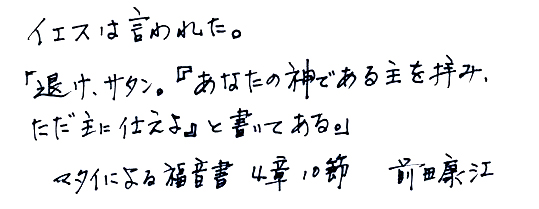 イエスは言われた。
「退け、サタン。『あなたの神である主を拝み、
ただ主に仕えよ』と書いてある。」
マタイによる福音書 4章10節 前田康江